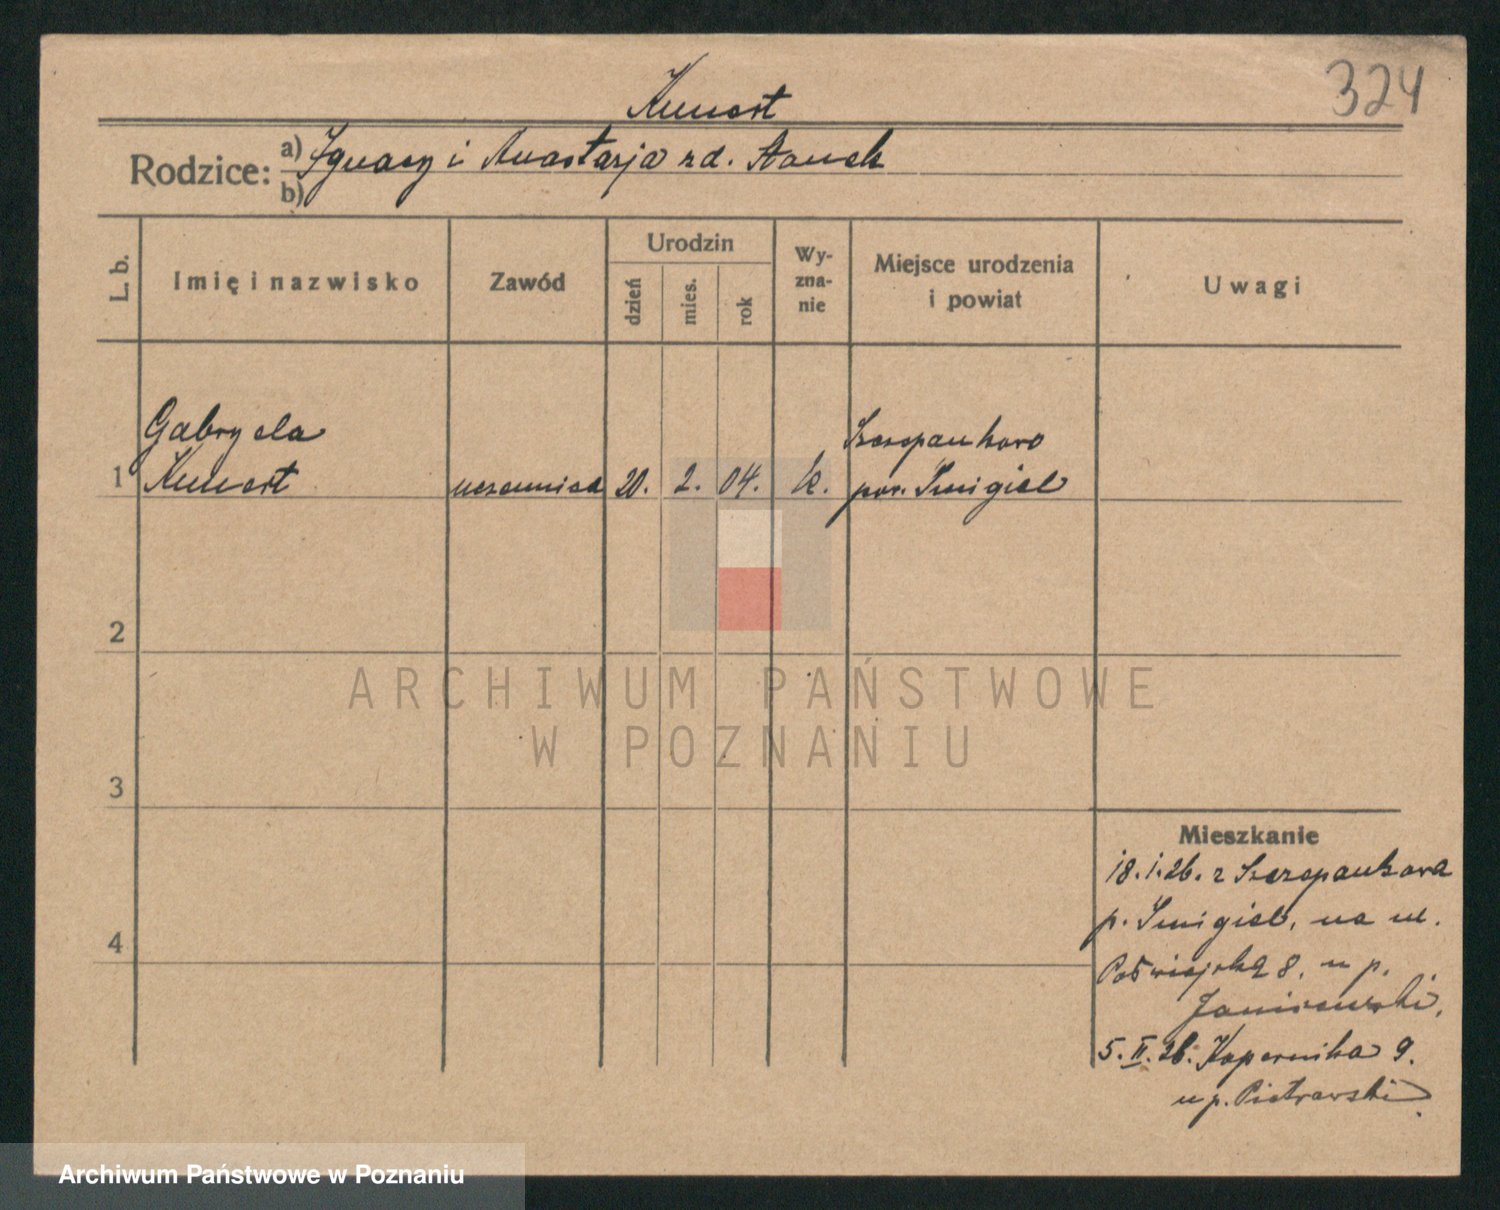 324
Kunert
Rodzice: a) Ignacy i Anastazja zd. Stanek
b)
L. b.
Imię i nazwisko
Zawód
Urodzin
dzień
mies.
rok
Wy-
zna-
nie
Miejsce urodzenia
i powiat
Uwagi
Gabryela
1 Kunert uczennica 20. 2. 04. k. Szczepankowo
pow. Śmigiel
2
ARCHIWUM PAŃSTWOWE
W POZNANIU
3
Mieszkanie
18.1.26. z Szczepankowa
p. Śmigiel, na ul.
4
8. u p.
Janiszewski,
5.II.26. Kopernika 9.
u p. Piotrowski
Archiwum Państwowe w Poznaniu